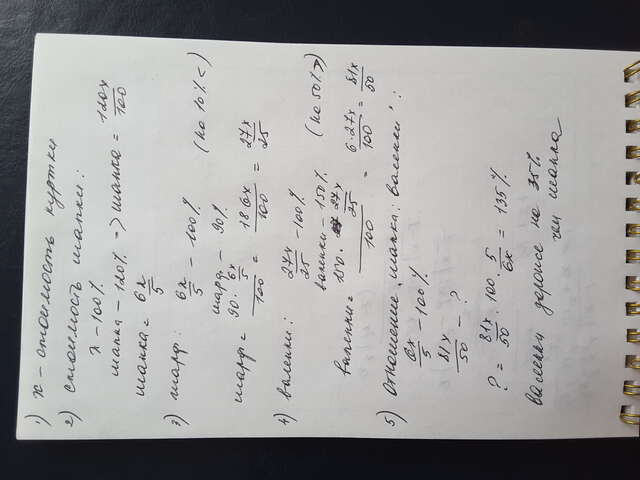 1) x – стоимость куртки
2) стоимость шапки:
x – 100%
шапка – 120% => шапка = 120x/100
шапка = 6x/5
3) шарф:
6x/5 – 100% (на 10% <)
шарф – 90%
шарф = (90 · 6x/5)/100 = 18 6x/100 = 27x/25
4) валенки:
27x/25 – 100%
валенки – 150% (на 50% >)
валенки = (150 · 27x/25)/100 = 6·27x/100 = 81x/50
5) Отношение "шапка : валенки":
6x/5 – 100%
81x/50 – ?
? = 81x/50 · 100 · 5/6x = 135%
валенки дороже на 35%
чем шапка